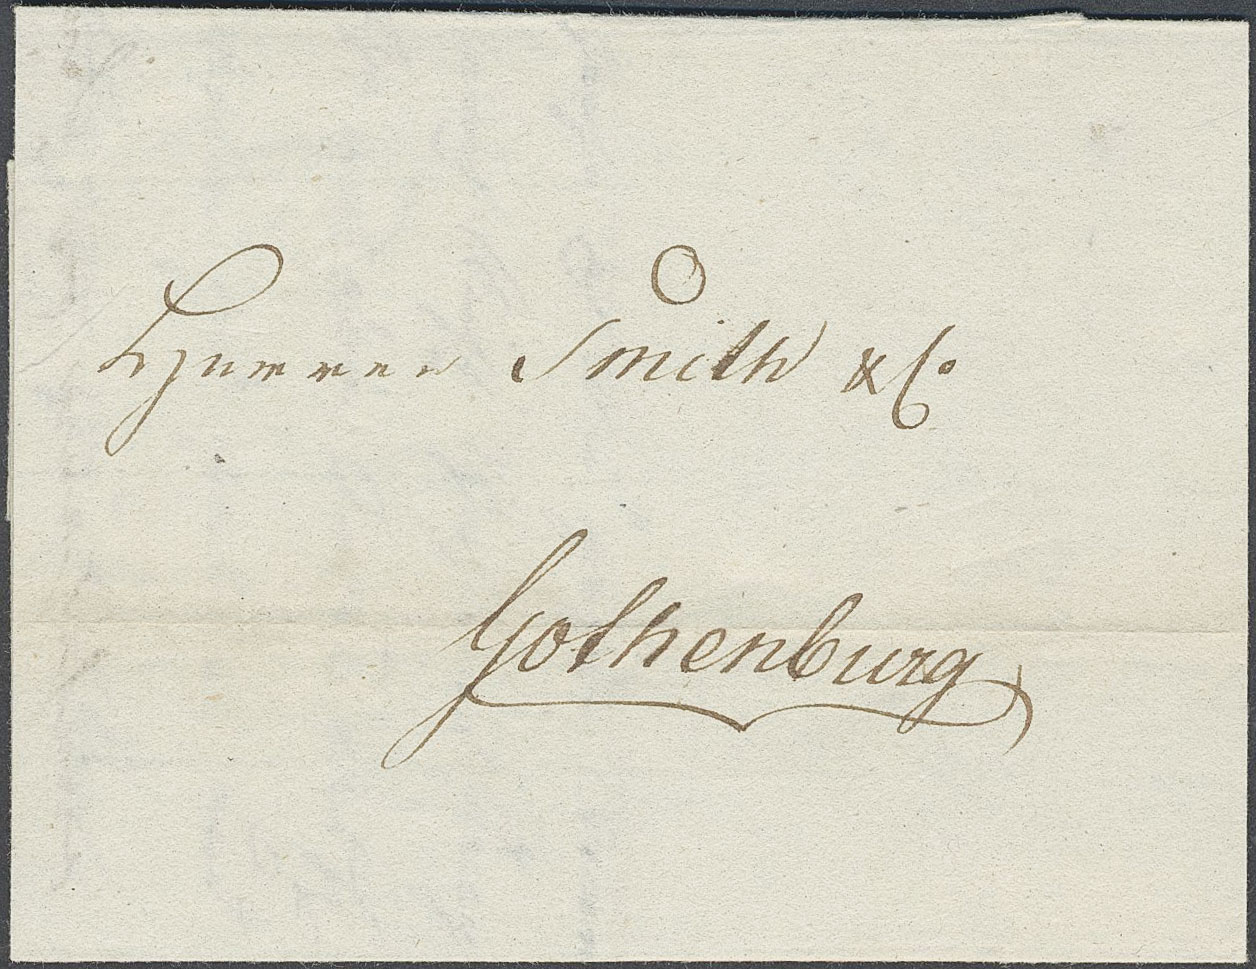 Herren Smith & Co
Gothenburg